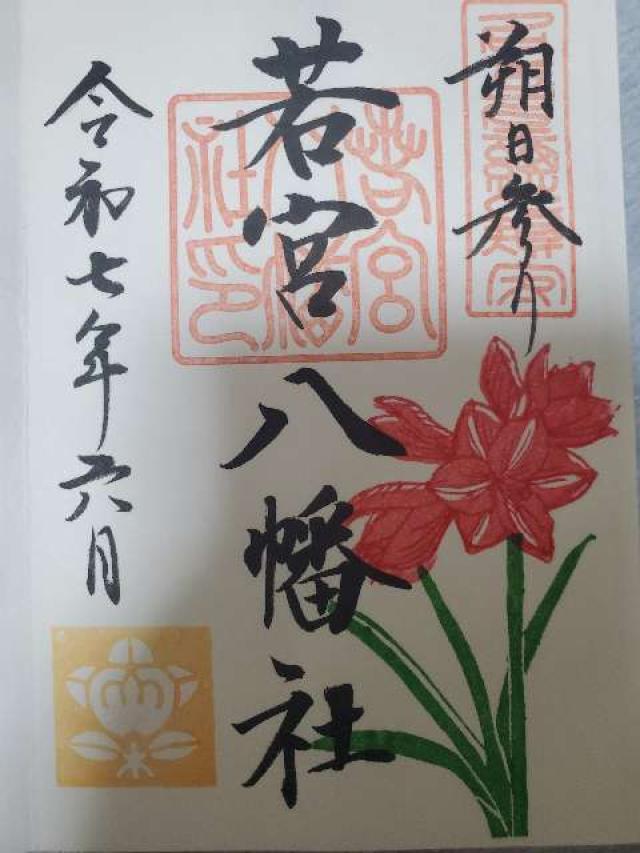 朔日参り
若宮八幡社
若宮八幡社印
令和七年六月